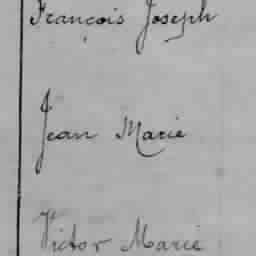 François Joseph
Jean Marie
Victor Marie